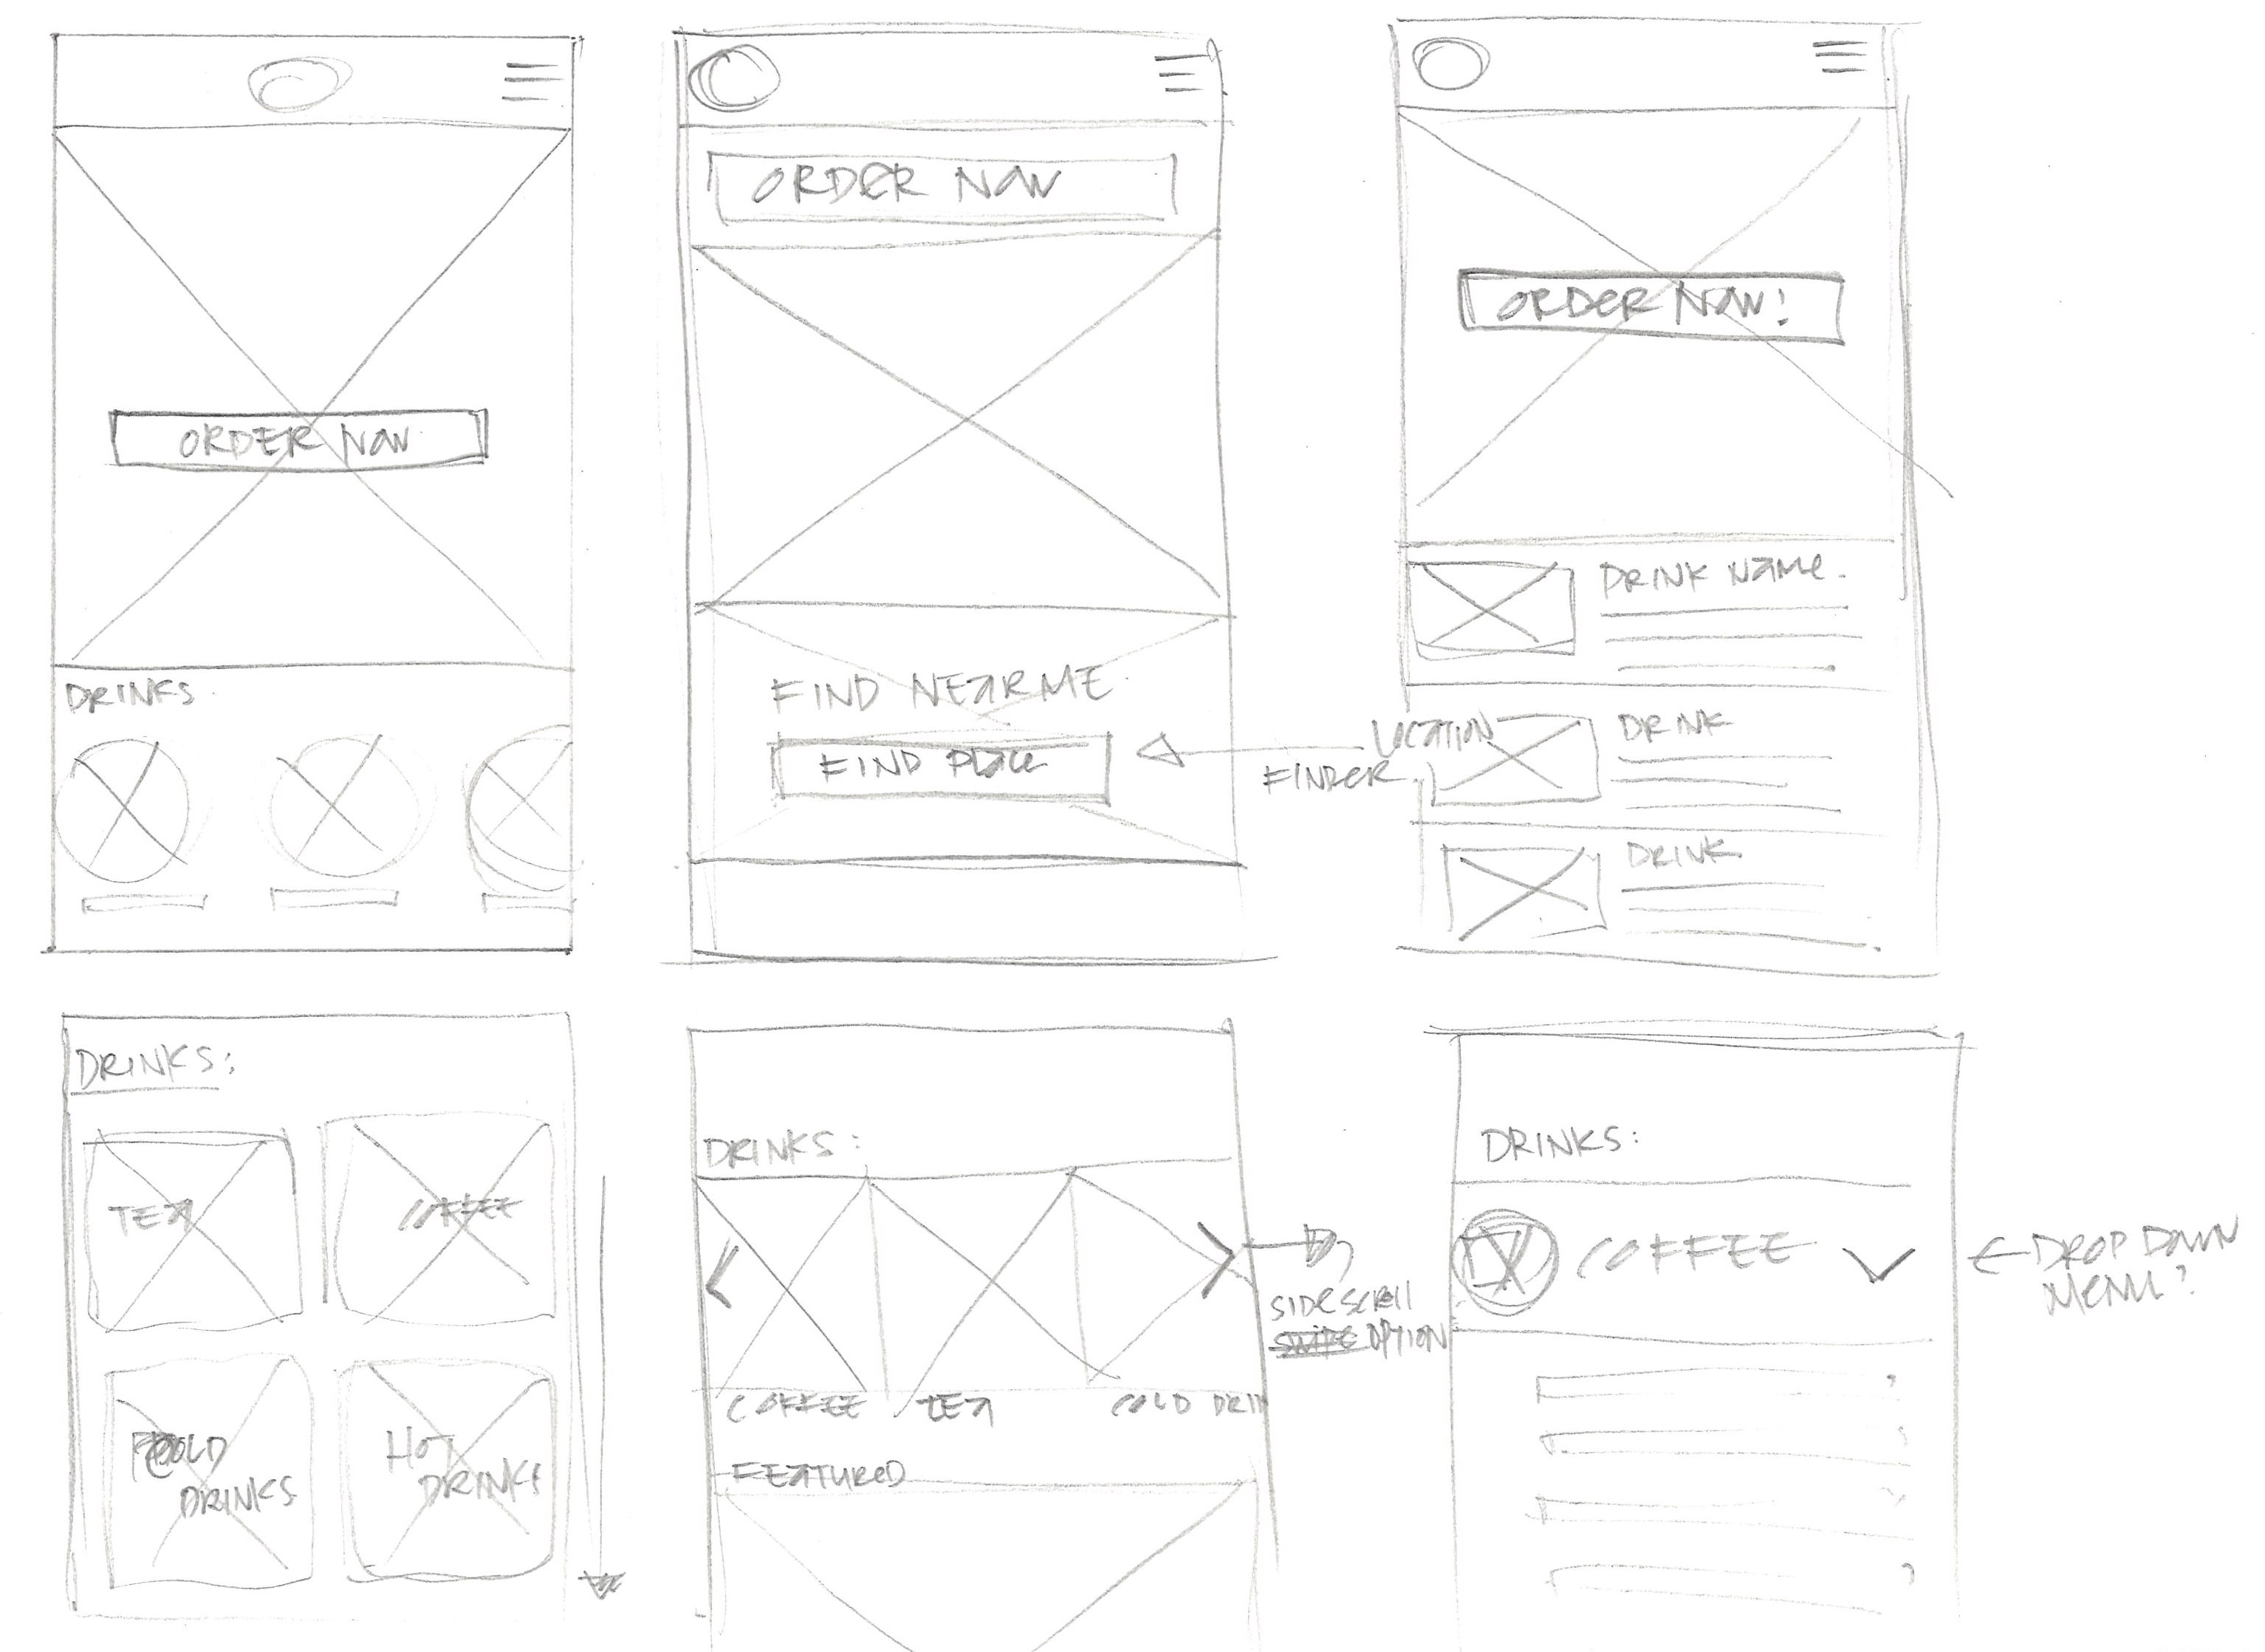 ORDER NOW
DRINKS
ORDER NOW
FIND NEAR ME
FIND PLACE
LOCATION
FINDER
ORDER NOW!
DRINK NAME
DRINK
DRINK
DRINKS:
TEA
COFFEE
COLD
DRINKS
HOT
DRINKS
DRINKS:
COFFEE
TEA
COLD DRIN
FEATURED
SIDE SCROLL
SWIPE OPTION
DRINKS:
COFFEE
DROP DOWN
MENU?